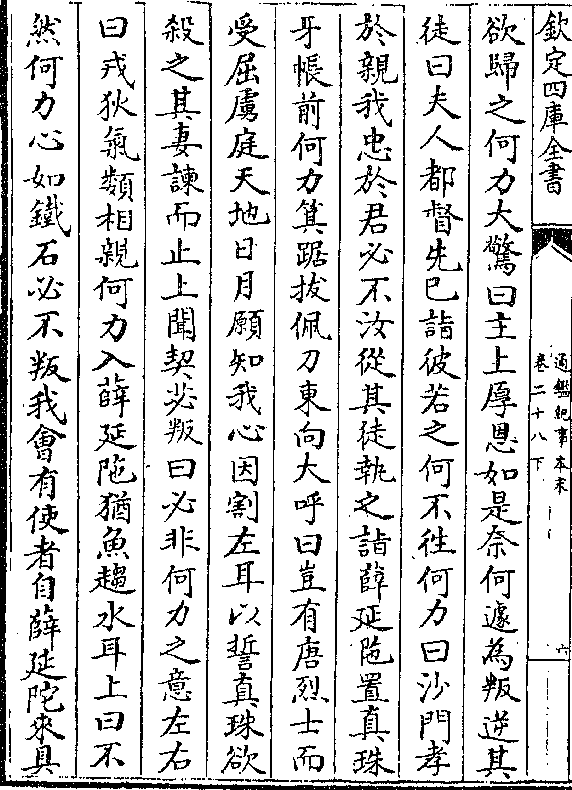 欽定四庫全書
通鑑紀事本末
卷二十八下
六
欲歸之何力大驚曰主上厚恩如是奈何遽為叛逆其
徒曰夫人都督先已詣彼若之何不徃何力曰沙門孝
於親我忠於君必不汝從其徒執之詣薛延陁置真珠
牙帳前何力箕踞拔佩刀東向大呼曰豈有唐烈士而
受屈虜庭天地日月願知我心因割左耳以誓真珠欲
殺之其妻諫而止上聞契苾叛曰必非何力之意左右
曰戎狄氣類相親何力入薛延陁猶魚趨水耳上曰不
然何力心如鐵石必不叛我會有使者自薛延陀來具